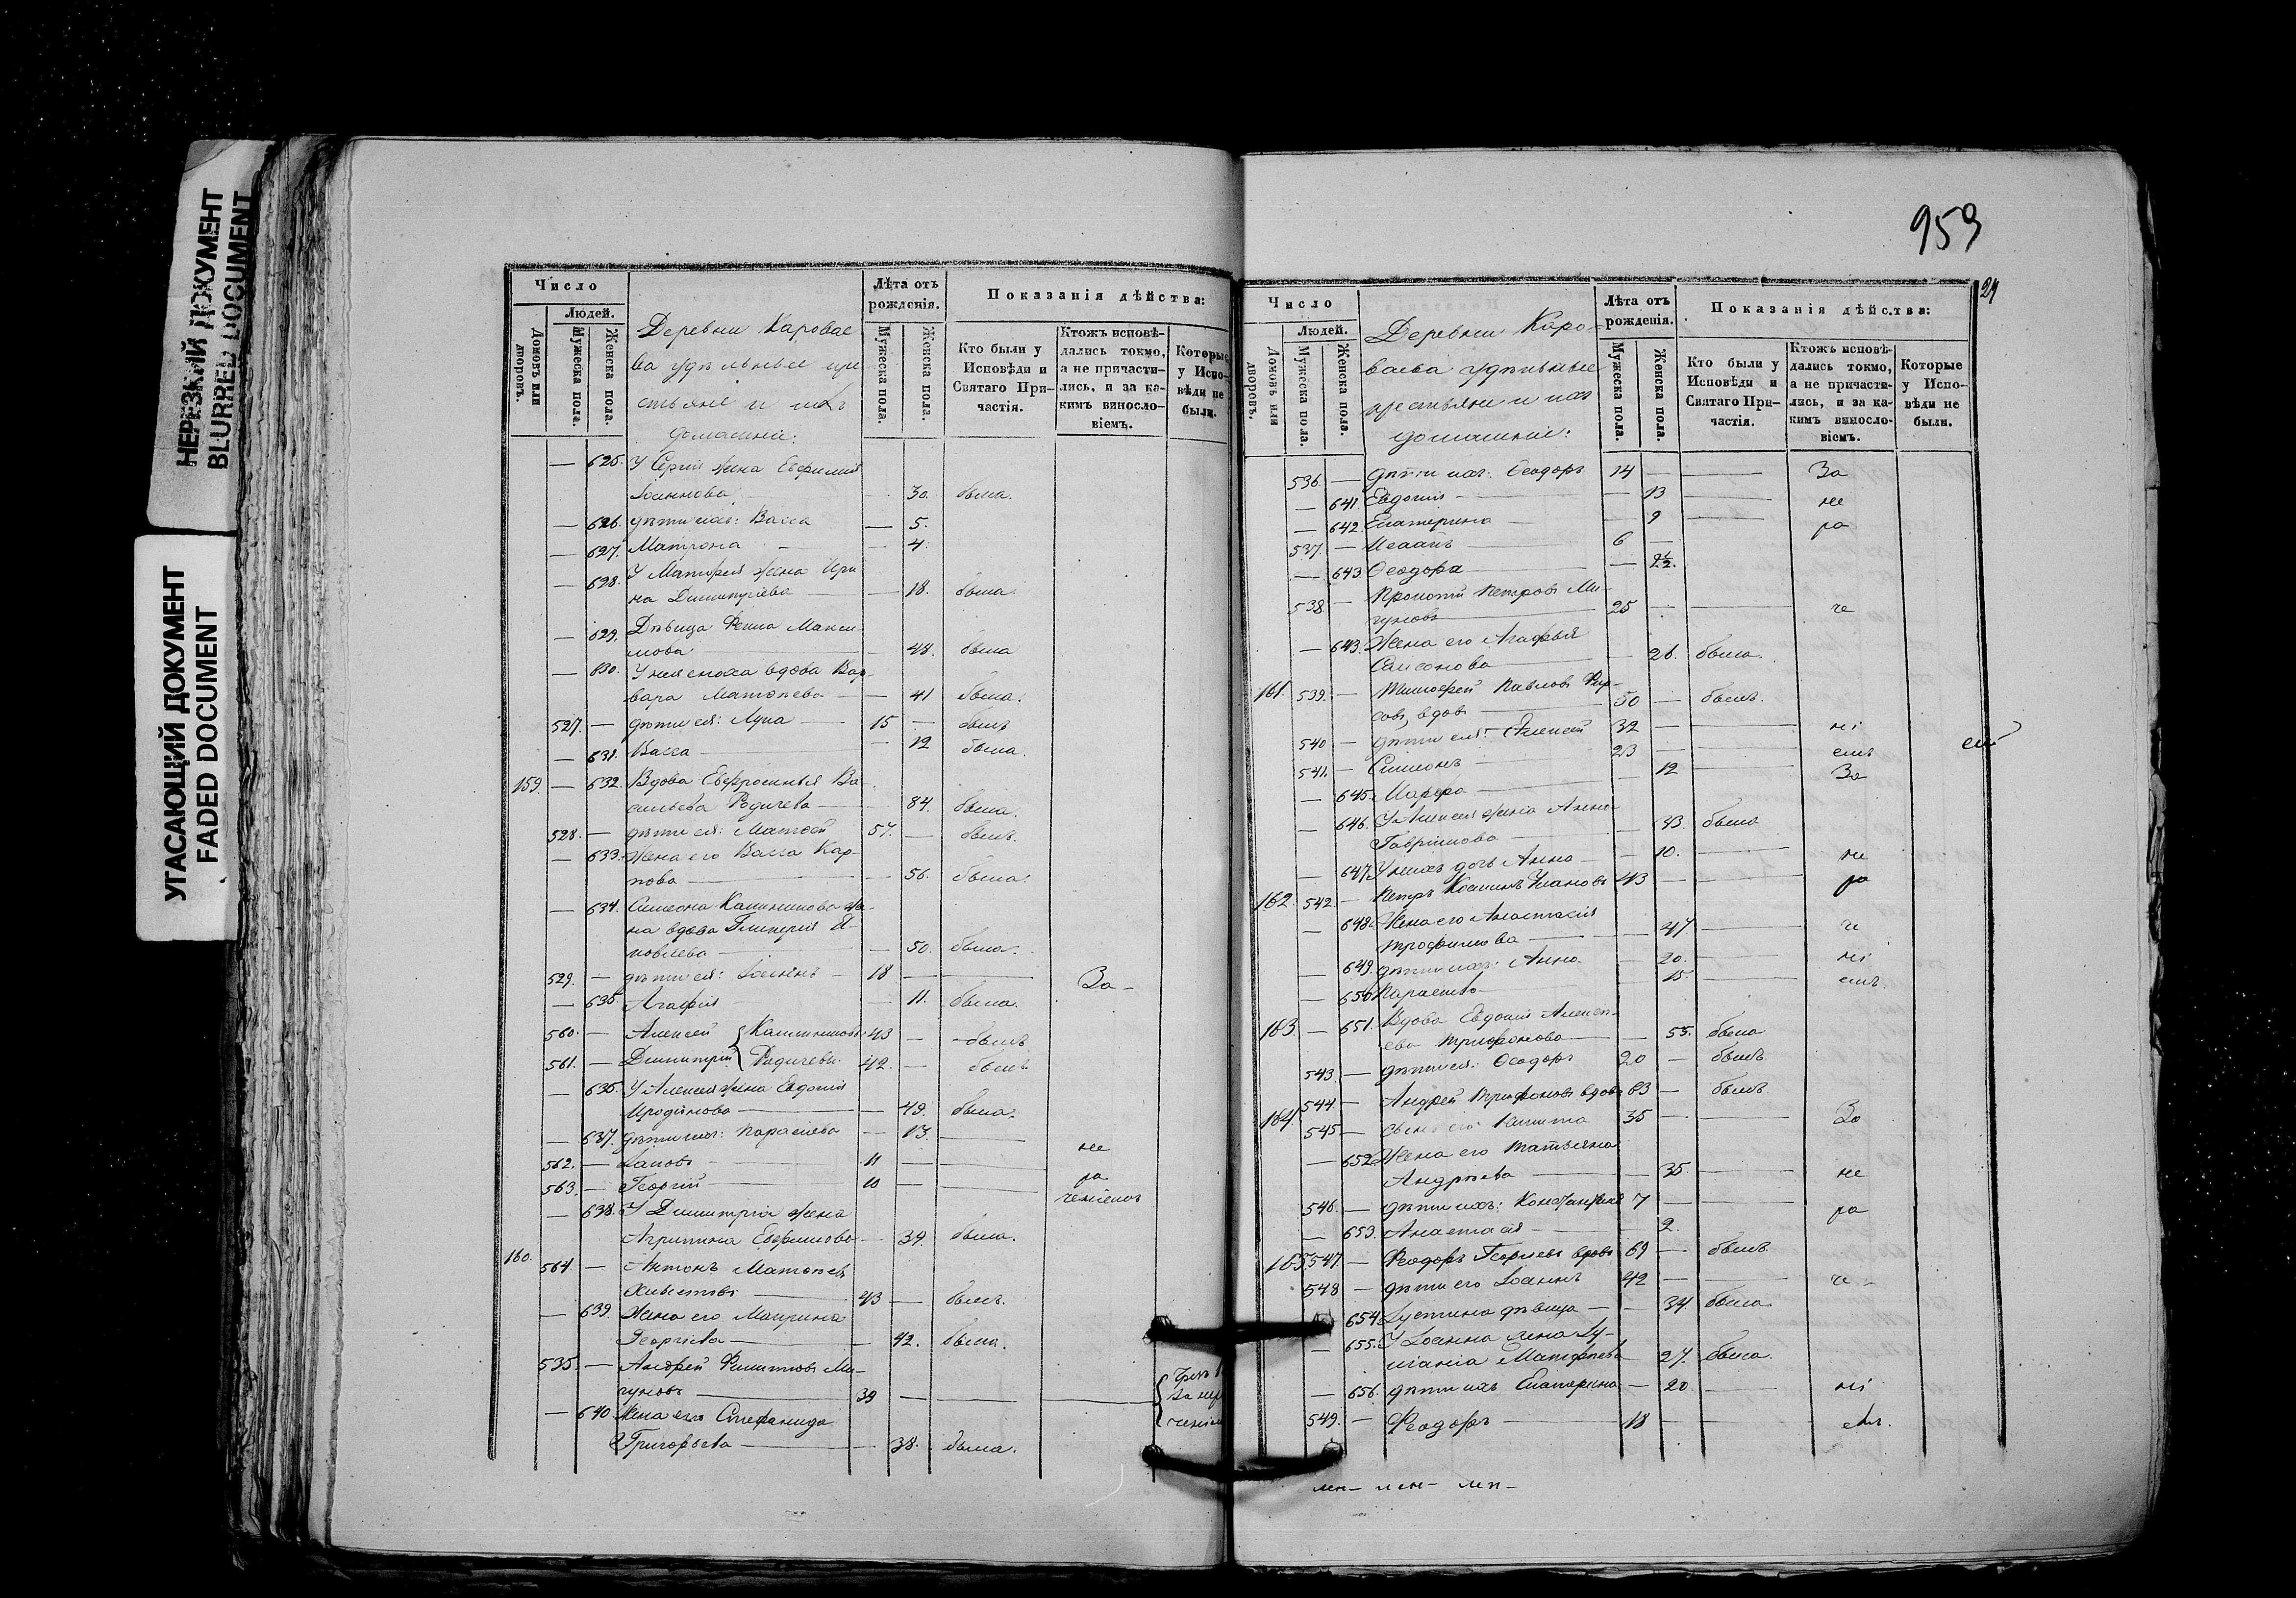 НЕРЕЗКИЙ ДОКУМЕНТ
BLURRED DOCUMENT
УГАСАЮЩИЙ ДОКУМЕНТ
FADED DOCUMENT
Число
Людей.
Домовъ или дворовъ.
Мужеска пола.
Женска пола.
Деревни Каровае
ва удѣльные кре
стьяне и ихъ
домашніи:
Лѣта отъ рожденія.
Мужеска пола.
Женска пола.
Показанія дѣйства:
Кто были у Исповѣди и Святаго Причастія.
Ктожъ исповѣ-
дались токмо,
а не причасти-
лись, и за ка-
кимъ винослo-
віемъ.
Которые
у Испо-
вѣди не
были.
— 625. У Сергія жена Евфимія
Іоаннова — 30. была.
— 626. дѣти ихъ: Васса — 5.
— 627. Матрона — 4.
— 628. У Матфея жена Ири
на Димитріева — 18. была.
— 629. Дѣвица Фекла Макси
мова — 48. была
— 630. У нея сноха вдова Вар-
вара Матѳеева — 41 была.
527. — дѣти ея: Лука 15 — былъ
— 631. Васса — 12 была.
159. — 632. Вдова Евфросинья Ва-
сильева Родичева — 84. была.
528. — дѣти ея: Матѳей 57. — былъ.
— 633. Жена его Васса Кар-
пова — 56. была.
— 634. Симеона Калинникова же-
на вдова Гликерія Я-
ковлева — 50. была.
529. — дѣти ея: Іоаннъ 18 — За-
— 635 Агафія — 11. была.
560. — Алексей { Калинниковы 43 — былъ
561. — Димитрій { Родичевы. 42. — былъ
— 636. У Алексея жена Евдокия
Иродіонова — 49. была.
— 637. дѣти ихъ: Параскева — 13. — не
562. — Іаковъ 11 — ра
563. — Георгій 10 — ченіемъ
— 638. У Димитрія жена
Агрипина Ефимова — 39. была.
160. 564. — Антонъ Матѳеевъ
43 — былъ.
— 639. Жена его Маррина
Георгіева — 42. была.
535. — Андрей Филиповъ Ми-
гуновъ 39 —
— 640 Жена его Стефанида
Григорьева — 38. была.
959
29
Число
Людей.
Домовъ или дворовъ.
Мужеска пола.
Женска пола.
Деревни Каро-
ваева удѣльные
крестьяне и ихъ
домашніи:
Лѣта отъ рожденія.
Мужеска пола.
Женска пола.
Показанія дѣйства:
Кто были у Исповѣди и Святаго Причастія.
Ктожъ исповѣ-
дались токмо,
а не причасти-
лись, и за ка-
кимъ винослo-
віемъ.
Которые
у Испо-
вѣди не
были.
536. — дѣти ихъ: Ѳеодоръ 14 — За
— 641. Евдокія — 13 — не
— 642. Екатерина — 9 — ра
537. — Исаакъ 6 —
— 643 Ѳеодора — 2½.
538. — Прокопій Петровъ Ми-
гуновъ 25 — че
— 643. Жена его Агафья
Самсонова — 26. была.
161. 539. — Тимофей Павловъ Фир-
совъ, вдовъ 50 — былъ.
540 — дѣти ея: Алексей 32 — ні
541. — Симеонъ 23 — емъ
— 645. Марфа — 12 — За
— 646. У Алексея жена Анна
Гавріилова — 33. была
— 647. У нихъ дочь Анна — 10. — не
162. 542. — Петръ Косминъ 43 — ра
— 648. Жена его Анастасія
Трофимова — 47 — че
— 649. дѣти ихъ: Анна — 20. — ні
— 650. Параскева — 15. — емъ.
163. — 651. Вдова Евдокія Алексе-
ева Трифонова — 55. была
543. — дѣти ея: Ѳеодоръ 20 — былъ
544 — Андрей Трифоновъ вдовъ 63 — былъ.
164. 545 — сынъ его Никита 35 — За
— 652. Жена его Татьяна
Андрѣева — 35. — не
546. — дѣти ихъ: Константинъ 7 — ра
— 653. Анастасія — 2.
165. 547. — Феодоръ Георгіевъ вдовъ 69 — былъ
548 — дѣти его Іоаннъ 42 — че
— 654 Іустина дѣвица — 34 была
— 655. У Іоанна жена Іу-
ліанія Матфеева — 27. была.
— 656. дѣти ихъ Екатерина — 20 — ні
549. — Феодоръ 18 — емъ.